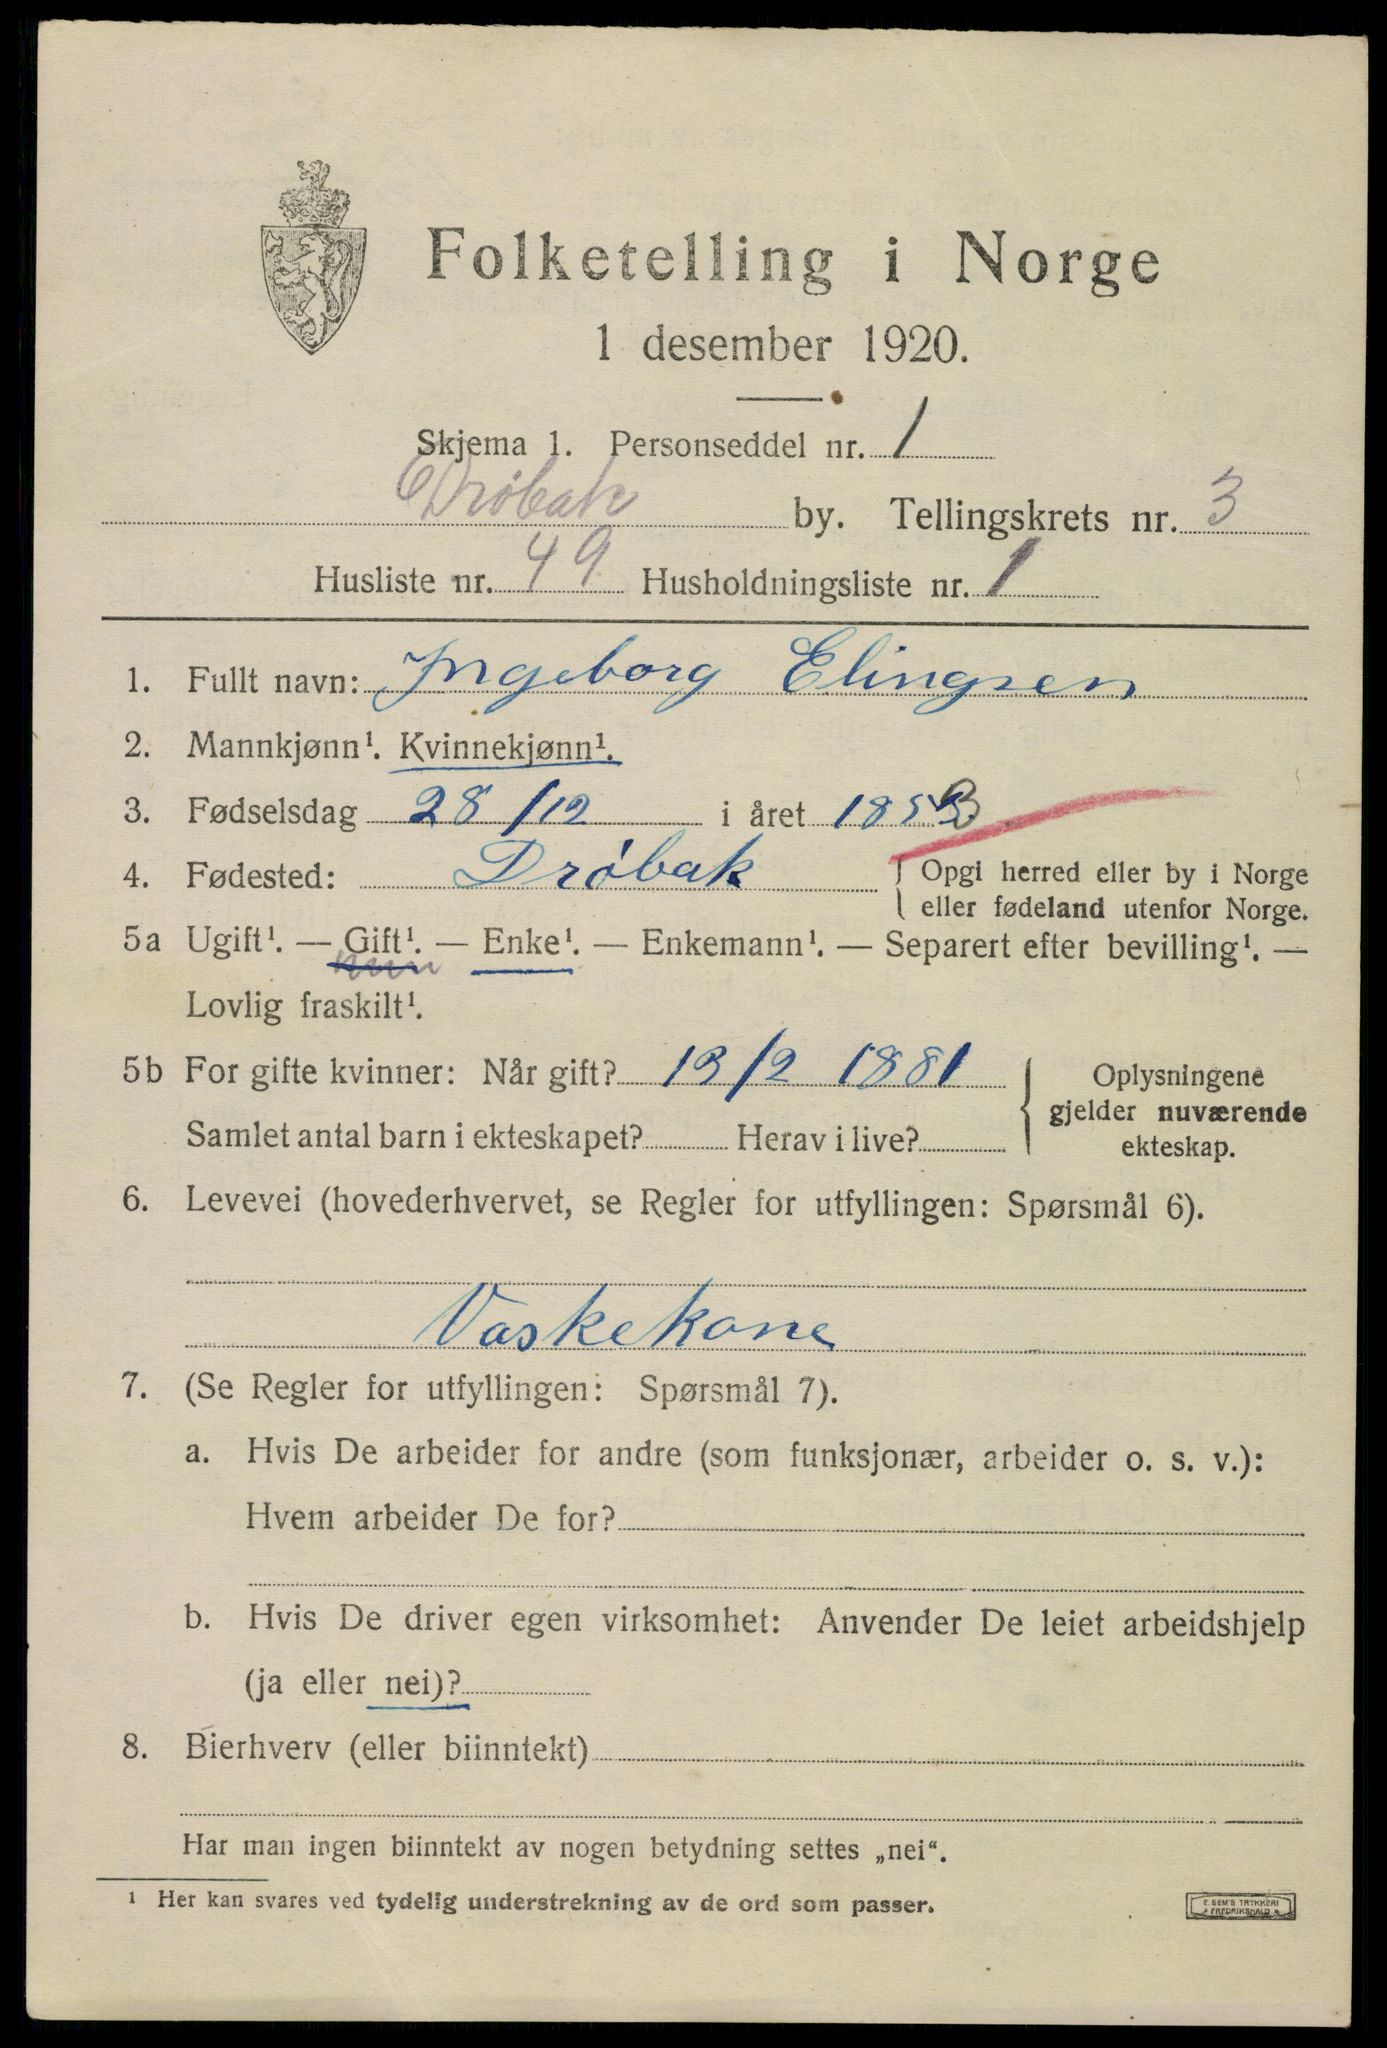 Folketelling i Norge
1 desember 1920.
Skjema 1. Personseddel nr. 1
Drøbak by. Tellingskrets nr. 3
Husliste nr. 49 Husholdningsliste nr. 1
1. Fullt navn: Ingeborg Elingsen
2. Mannkjønn¹. Kvinnekjønn¹.
3. Fødselsdag 28/12 i året 1853
4. Fødested: Drøbak { Opgi herred eller by i Norge
eller fødeland utenfor Norge.
5a Ugift¹. — Gift¹. — Enke¹. — Enkemann¹. — Separert efter bevilling¹. —
Lovlig fraskilt¹.
5b For gifte kvinner: Når gift? 13/2 1881
Samlet antal barn i ekteskapet? Herav i live?
{ Oplysningene
gjelder nuværende
ekteskap.
6. Levevei (hovederhvervet, se Regler for utfyllingen: Spørsmål 6).
Vaskekone
7. (Se Regler for utfyllingen: Spørsmål 7).
a. Hvis De arbeider for andre (som funksjonær, arbeider o. s. v.):
Hvem arbeider De for?
b. Hvis De driver egen virksomhet: Anvender De leiet arbeidshjelp
(ja eller nei)?
8. Bierhverv (eller biinntekt)
Har man ingen biinntekt av nogen betydning settes „nei“.
¹ Her kan svares ved tydelig understrekning av de ord som passer.
E. SEM'S TRYKKERI
FREDRIKSHALD